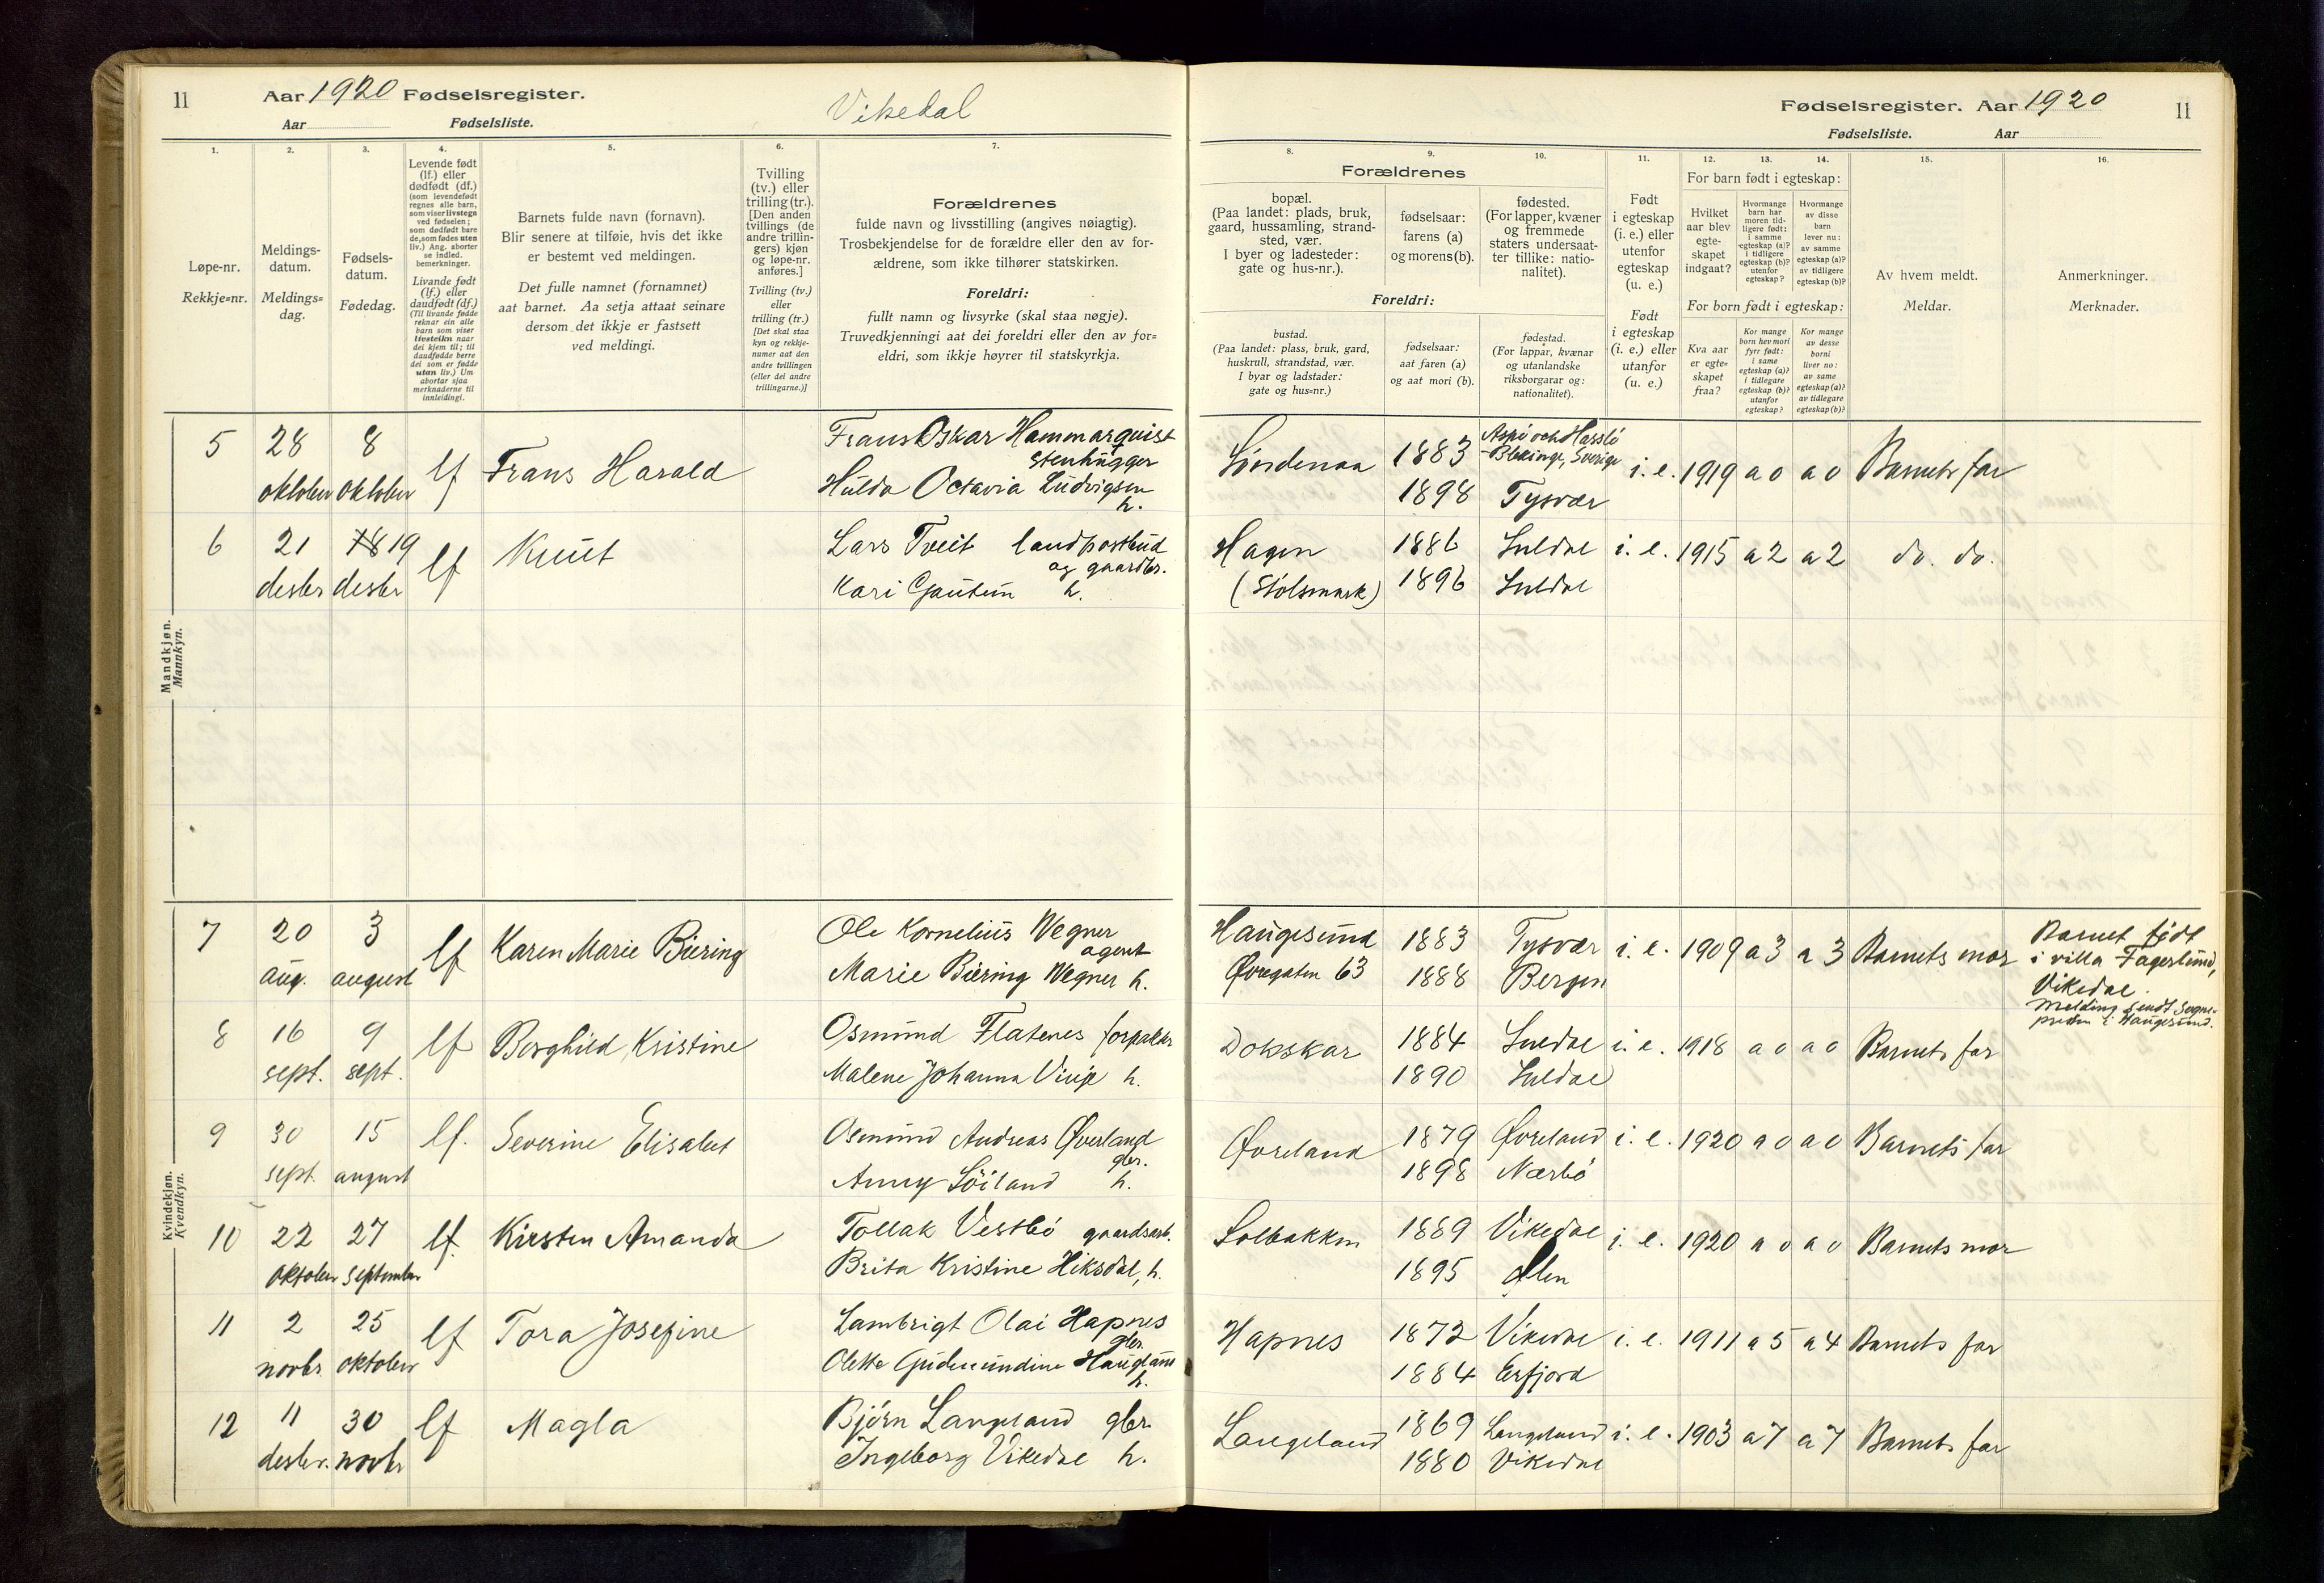 11 Aar 1920 Fødselsregister. Vikedal
Aar Fødselsliste.
1.
Løpe-nr.
Rekkje=nr.
2.
Meldings-
datum.
Meldings=
dag.
3.
Fødsels-
datum.
Fødedag.
4.
Levende født
(lf.) eller
dødfødt (df.)
(som levendefødt
regnes alle barn,
som viser livstegn
ved fødselen;
som dødfødt bare
de, som fødes uten
liv.) Ang. aborter
se indled.
bemerkninger.
Livande født
(lf.) eller
daudfødt (df.)
(Til livande fødde
reknar ein alle
barn som viser
livsteikn naar
dei kjem til; til
daudfødde berre
dei som er fødde
utan liv.) Um
abortar sjaa
merknaderne til
innleidingi.
5.
Barnets fulde navn (fornavn).
Blir senere at tilføie, hvis det ikke
er bestemt ved meldingen.
Det fulle namnet (fornamnet)
aat barnet. Aa setja attaat seinare
dersom det ikkje er fastsett
ved meldingi.
6.
Tvilling
(tv.) eller
trilling (tr.).
[Den anden
tvillings (de
andre trillin-
gers) kjøn
og løpe-nr.
anføres.]
Tvilling (tv.)
eller
trilling (tr.)
[Det skal staa
kyn og rekkje-
numer aat den
andre tvillingen
(eller dei andre
trillingarne.)]
7.
Forældrenes
fulde navn og livsstilling (angives nøiagtig).
Trosbekjendelse for de forældre eller den av for-
ældrene, som ikke tilhører statskirken.
Foreldri:
fullt namn og livsyrke (skal staa nøgje).
Truvedkjenningi aat dei foreldri eller den av for=
eldri, som ikkje høyrer til statskyrkja.
Mandkjøn.
Mannkyn.
5 28 oktober 8 oktober lf Frans Harald
Frans Oskar Hammarquist
Stenhugger
Hulda Octavia Ludvigsen
h.
6 21 desbr 18 19 desbr lf Knut
Lars Tveit landpostbud
og gaardbr.
Kari Gautun h.
Kvindekjøn.
Kvendkyn.
7 20 aug. 3 august lf Karen Marie Büring
Ole Kornelius Wegner
agent
Marie Büring Wegner h.
8 16 sept. 9 sept. lf Borghild Kristine
Osmund Flatenes forpakter
Malene Johanna h.
9 30 sept. 15 august lf. Severine Elisabet
Osmund Andreas Øverland
gbr.
Anny Löiland h.
10 22 oktober 27 September lf. Kirsten Amanda
Tollak Vestbö gaardsarb.
Brita Kristine Hiksdal, h.
11 2 novbr. 25 oktober lf Tora Josefine
Lambrigt Olai Hapnes
gbr.
Olette Gudmundine Haugland
h.
12 11 desbr. 30 novbr lf Magla
Bjørn Langeland gbr.
Ingeborg Vikedal h.
Fødselsregister. Aar 1920 11
Fødselsliste. Aar
8.
Forældrenes
bopæl.
(Paa landet: plads, bruk,
gaard, hussamling, strand-
sted, vær.
I byer og ladesteder:
gate og hus-nr.).
Foreldri:
bustad.
(Paa landet: plass, bruk, gard,
huskrull, strandstad, vær.
I byar og ladstader:
gate og hus=nr.)
9.
fødselsaar:
farens (a)
og morens (b).
fødselsaar:
aat faren (a)
og aat mori (b).
10.
fødested.
(For lapper, kvæner
og fremmede
staters undersaat-
ter tillike: natio-
nalitet).
fødestad.
(For lappar, kvænar
og utanlandske
riksborgarar og:
nationalitet).
11.
Født
i egteskap
(i. e.) eller
utenfor
egteskap
(u. e.)
Født
i egteskap
(i. e.) eller
utanfor
(u. e.)
For barn født i egteskap:
12.
Hvilket
aar blev
egte-
skapet
indgaat?
13.
Hvormange
barn har
moren tid-
ligere født:
i samme
egteskap (a)?
i tidligere
egteskap (b)?
utenfor
egteskap?
14.
Hvormange
av disse
barn
lever nu:
av samme
egteskap (a)?
av tidligere
egteskap (b)?
For born født i egteskap:
Kva aar
er egte-
skapet
fraa?
Kor mange
born hev mori
fyrr født:
i same
egteskap (a)?
i tidlegare
egteskap (b)?
utanfor
egteskap?
Kor mange
av desse
borni
liver no:
av same
egteskap (a)?
av tidlegare
egteskap (b)?
15.
Av hvem meldt.
Meldar.
16.
Anmerkninger.
Merknader.
Söndenaa 1883 Aspö och Hasslö
Blekinge, Sverige i. e. 1919 a 0 a 0 Barnets far
1898 Tysvær
Hagen 1886 Suldal i. e. 1915 a 2 a 2 do. do.
(Stölsmark) 1896 Suldal
Haugesund 1883 Tysvær i. e. 1909 a 3 a 3 Barnets mor
Øvregaten 63 1888 Bergen
Barnet født
i villa Fagerlund,
Vikedal.
Melding sendt Sogne-
presten i Haugesund.
Dokskar 1884 Suldal i. e. 1918 a 0 a 0 Barnets far
1890 Suldal
Øvreland 1879 Øvreland i. e. 1920 a 0 a 0 Barnets far
1898 Nærbö
Solbakken 1889 Vikedal i. e. 1920 a 0 a 0 Barnets mor
1895 Ølen
Hapnes 1872 Vikedal i. e. 1911 a 5 a 4 Barnets far
1884 Erfjord
Langeland 1869 Langeland i. e. 1903 a 7 a 7 Barnets far
1880 Vikedal